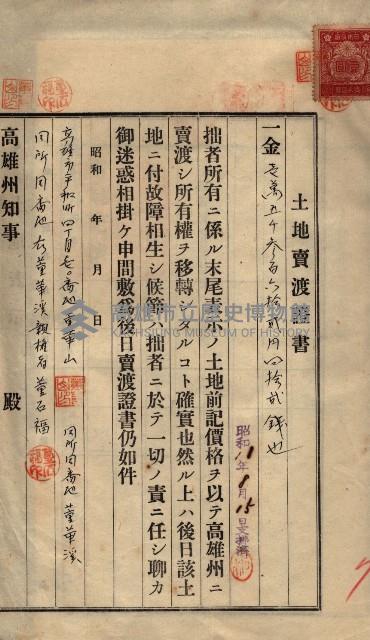 土地賣渡證書
一金壱萬五千参百六拾貳円四拾貳錢也
拙者所有ニ係ル末尾表示ノ土地前記價格ヲ以テ高雄州ニ
賣渡シ所有權ヲ移轉シタルコト確實也然ル上ハ後日該土
地ニ付故障相生シ候節ハ拙者ニ於テ一切ノ責ニ任シ聊カ
御迷惑相掛ケ申間敷爲後日賣渡證書仍如件
昭和11年8月15日支拂濟
昭和 年 月 日
高雄市平和町四丁目七〇番地 董華山
同所同番地 董華溪
同所同番地右董華溪親權者 董石福
高雄州知事 殿
高雄市立歷史博物館
KAOHSIUNG MUSEUM OF HISTORY